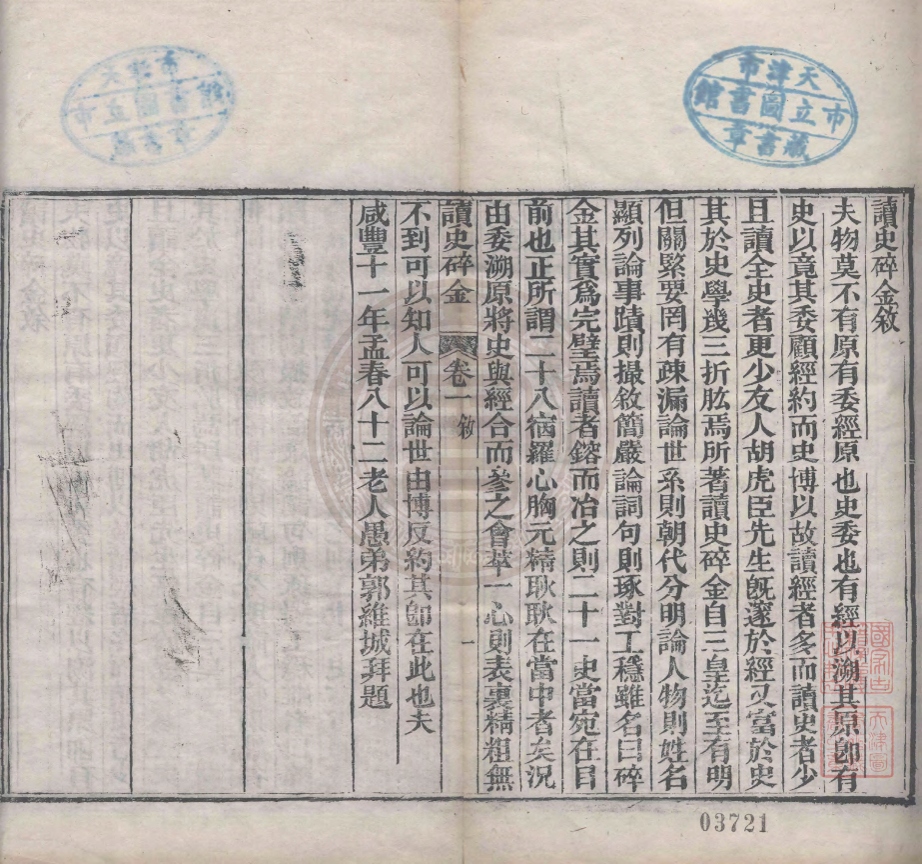 天津市
市立圖書館
藏書章
讀史碎金敘
夫物莫不有原有委經原也史委也有經以溯其原卽有
史以竟其委顧經約而史博以故讀經者多而讀史者少
且讀全史者更少友人胡虎臣先生旣邃於經又富於史
其於史學幾三折肱焉所著讀史碎金自三皇迄至有明
但關緊要罔有疎漏論世系則朝代分明論人物則姓名
顯列論事蹟則撮敘簡嚴論詞句則琢對工穩雖名曰碎
金其實爲完璧焉讀者鎔而冶之則二十一史當宛在目
前也正所謂二十八宿羅心胸元精耿耿在當中者矣況
由委溯原將史與經合而參之會萃一心則表裏精粗無
讀史碎金 卷一敘 一
不到可以知人可以論世由博反約其卽在此也夫
咸豐十一年孟春八十二老人愚弟郭維城拜題
03721